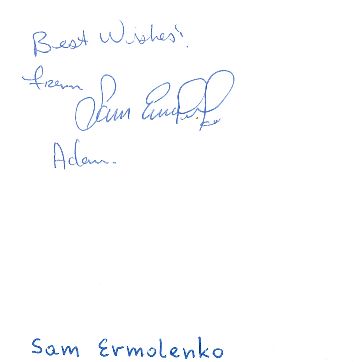 Best Wishes!
from
Sam Ermolenko
Adam.
Sam Ermolenko